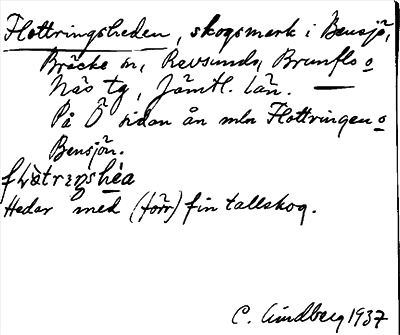 Flottringsheden, skogsmark i Bensjö,
Bräcke sn, Revsunds, Brunflo o
Näs tg, Jämtl. län. —
På Ö sidan ån mln Flottringen o
Bensjön.
flòtrıŋshèa
Hedar med (törr) fin tallskog.
C. Lindberg 1937